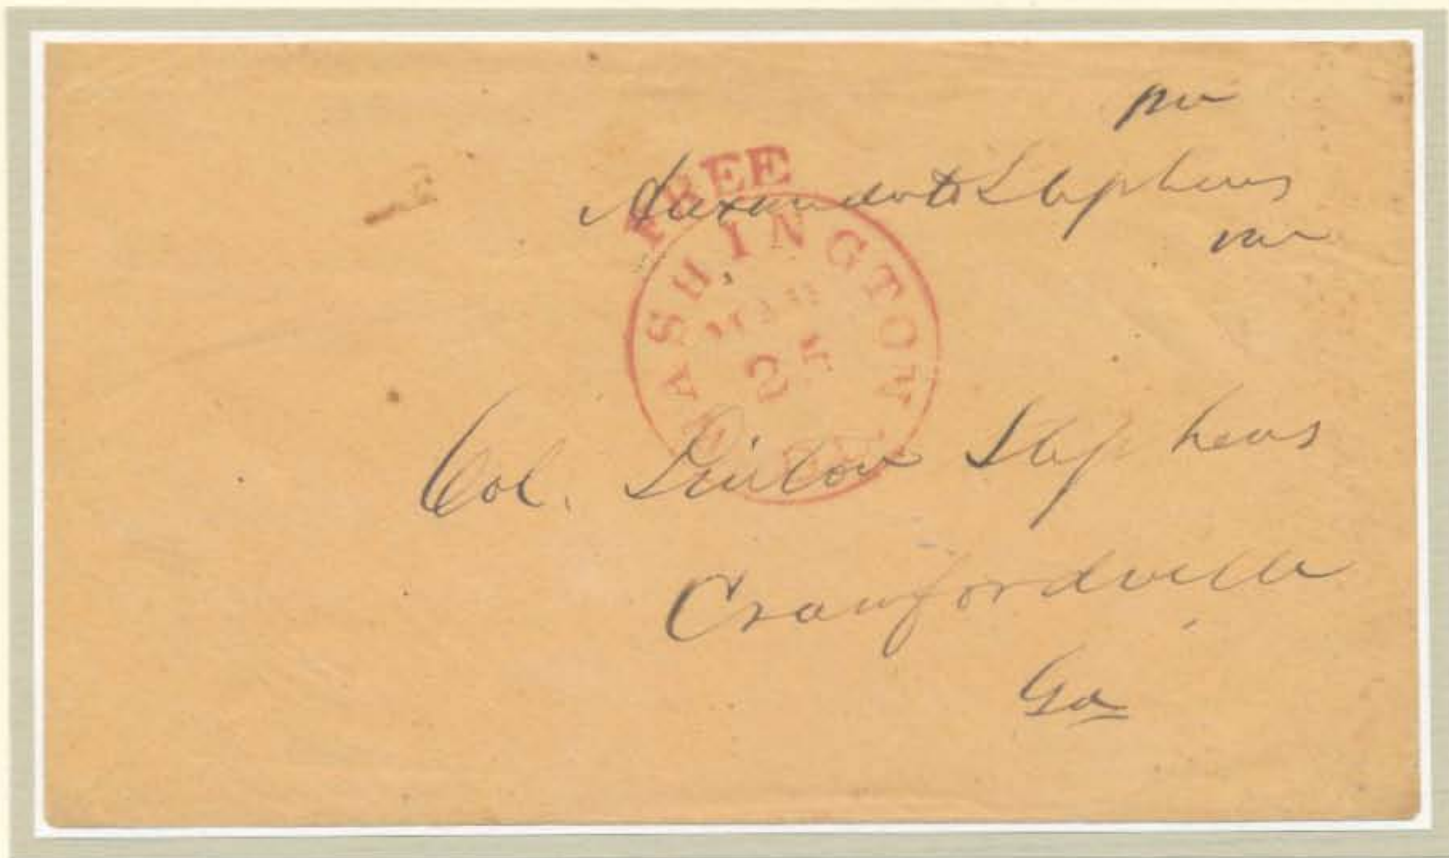 Free
Alexander H Stephens
MC
FREE
WASHINGTON
MAR
25
D.C.
Col. Linton Stephens
Crawfordville
Ga